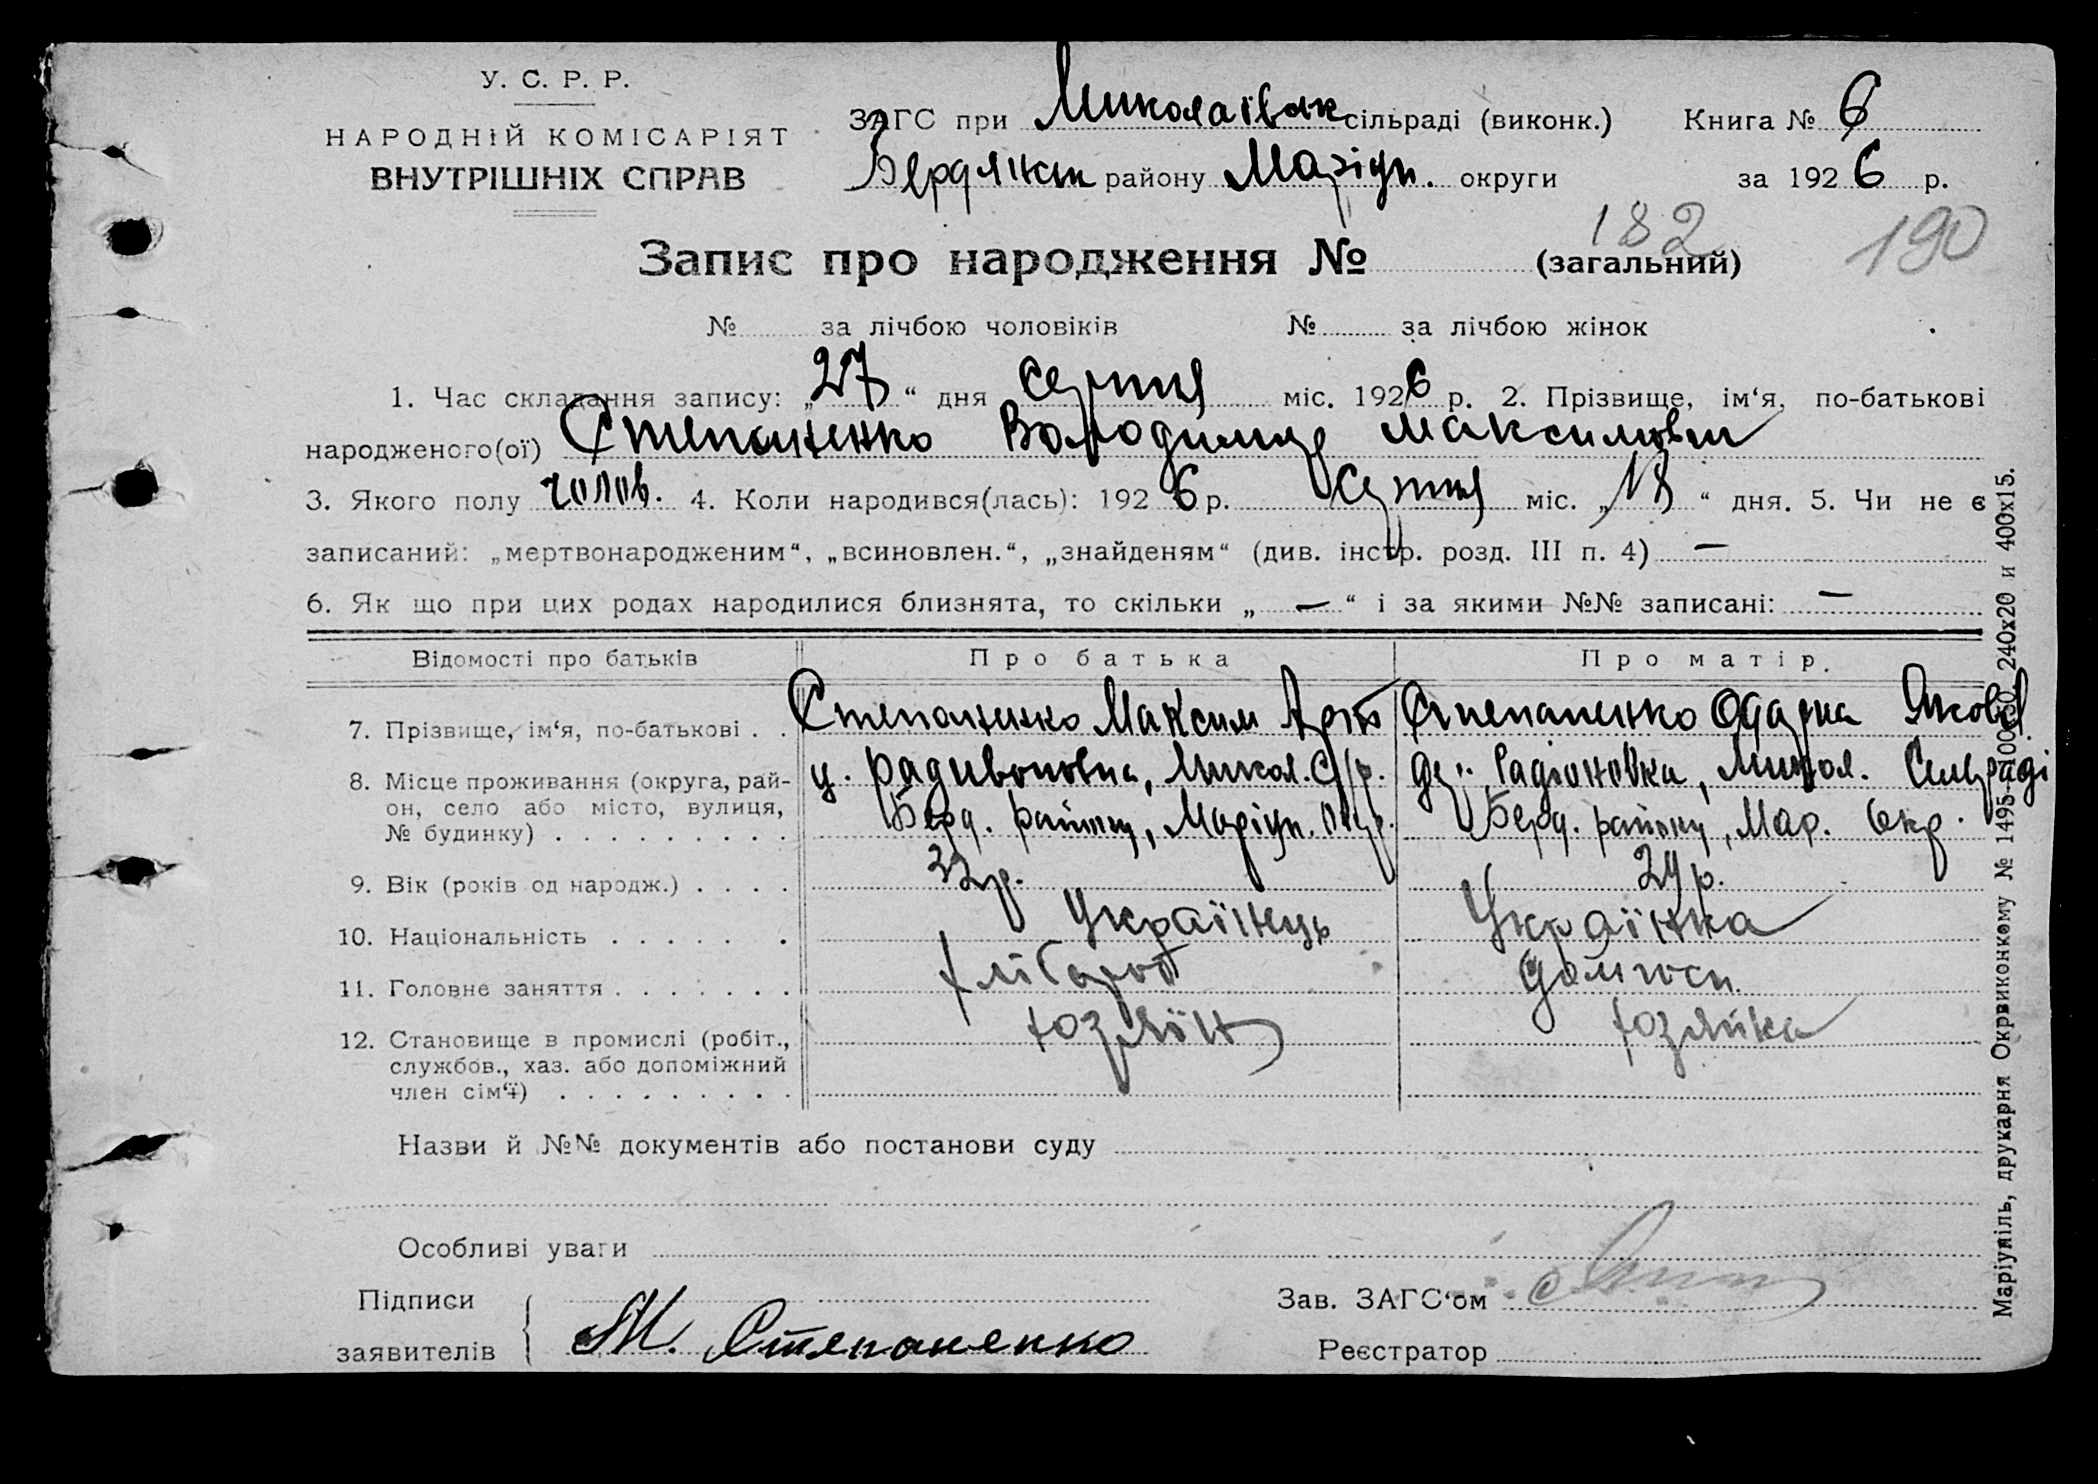 У. С. Р. Р.
НАРОДНІЙ КОМІСАРІЯТ
ВНУТРІШНІХ СПРАВ
ЗАГС при Миколаївськ сільраді (виконк.) Книга № 6
Бердянськ району Маріуп. округи за 1926 р.
182 190
Запис про народження № (загальний)
№ за лічбою чоловіків № за лічбою жінок
1. Час складання запису: „27“ дня серпня міс. 1926 р. 2. Прізвище, ім‘я, по-батькові
народженого(ої) Степаненко Володимир Максимович
3. Якого полу чолов. 4. Коли народився(лась): 1926 р. серпня міс. „18“ дня. 5. Чи не є
записаний: „мертвонародженим“, „всиновлен.“, „знайденям“ (див. інстр. розд. III п. 4) —
6. Як що при цих родах народилися близнята, то скільки „—“ і за якими №№ записані: —
Відомості про батьків Про батька Про матір.
7. Прізвище, ім‘я, по-батькові . . Степаненко Максим Степаненко Одарка Яковл.
8. Місце проживання (округа, рай-
он, село або місто, вулиця,
№ будинку) . . . . . . . . .
Радивоновка, Микол. С/р.
Берд. району, Маріуп. окр.
Радіоновка, Микол. Сільраді
Берд. району, Мар. Окр.
9. Вік (років од народж.) . . . . 32 р. 29 р.
10. Національність . . . . . . Українець Українка
11. Головне заняття . . . . . . . хлібороб домгосп.
12. Становище в промислі (робіт.,
службов., хаз. або допоміжний
член сім‘ї) . . . . . . . . .
хозяїн хозяйка
Назви й №№ документів або постанови суду
Особливі уваги
Підписи
заявителів М. Степаненко
Зав. ЗАГС‘ом
Реєстратор
Маріупіль, друкарня Окрвиконкому № 1495-10000 240х20 и 400х15.